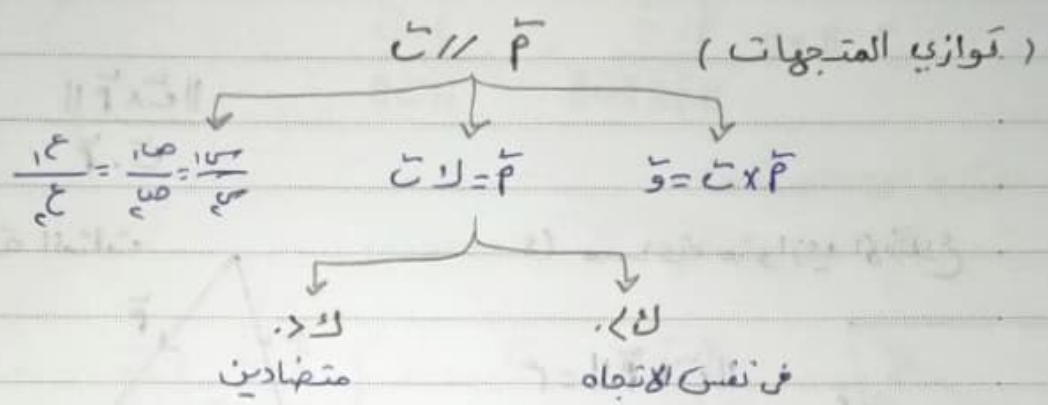 ( توازي المتجهات ) أَ // بَ
أَ × بَ = وَ    أَ = ك بَ    س١/س٢ = ص١/ص٢ = ع١/ع٢
ك > ٠    ك < ٠
في نفس الاتجاه    متضادين